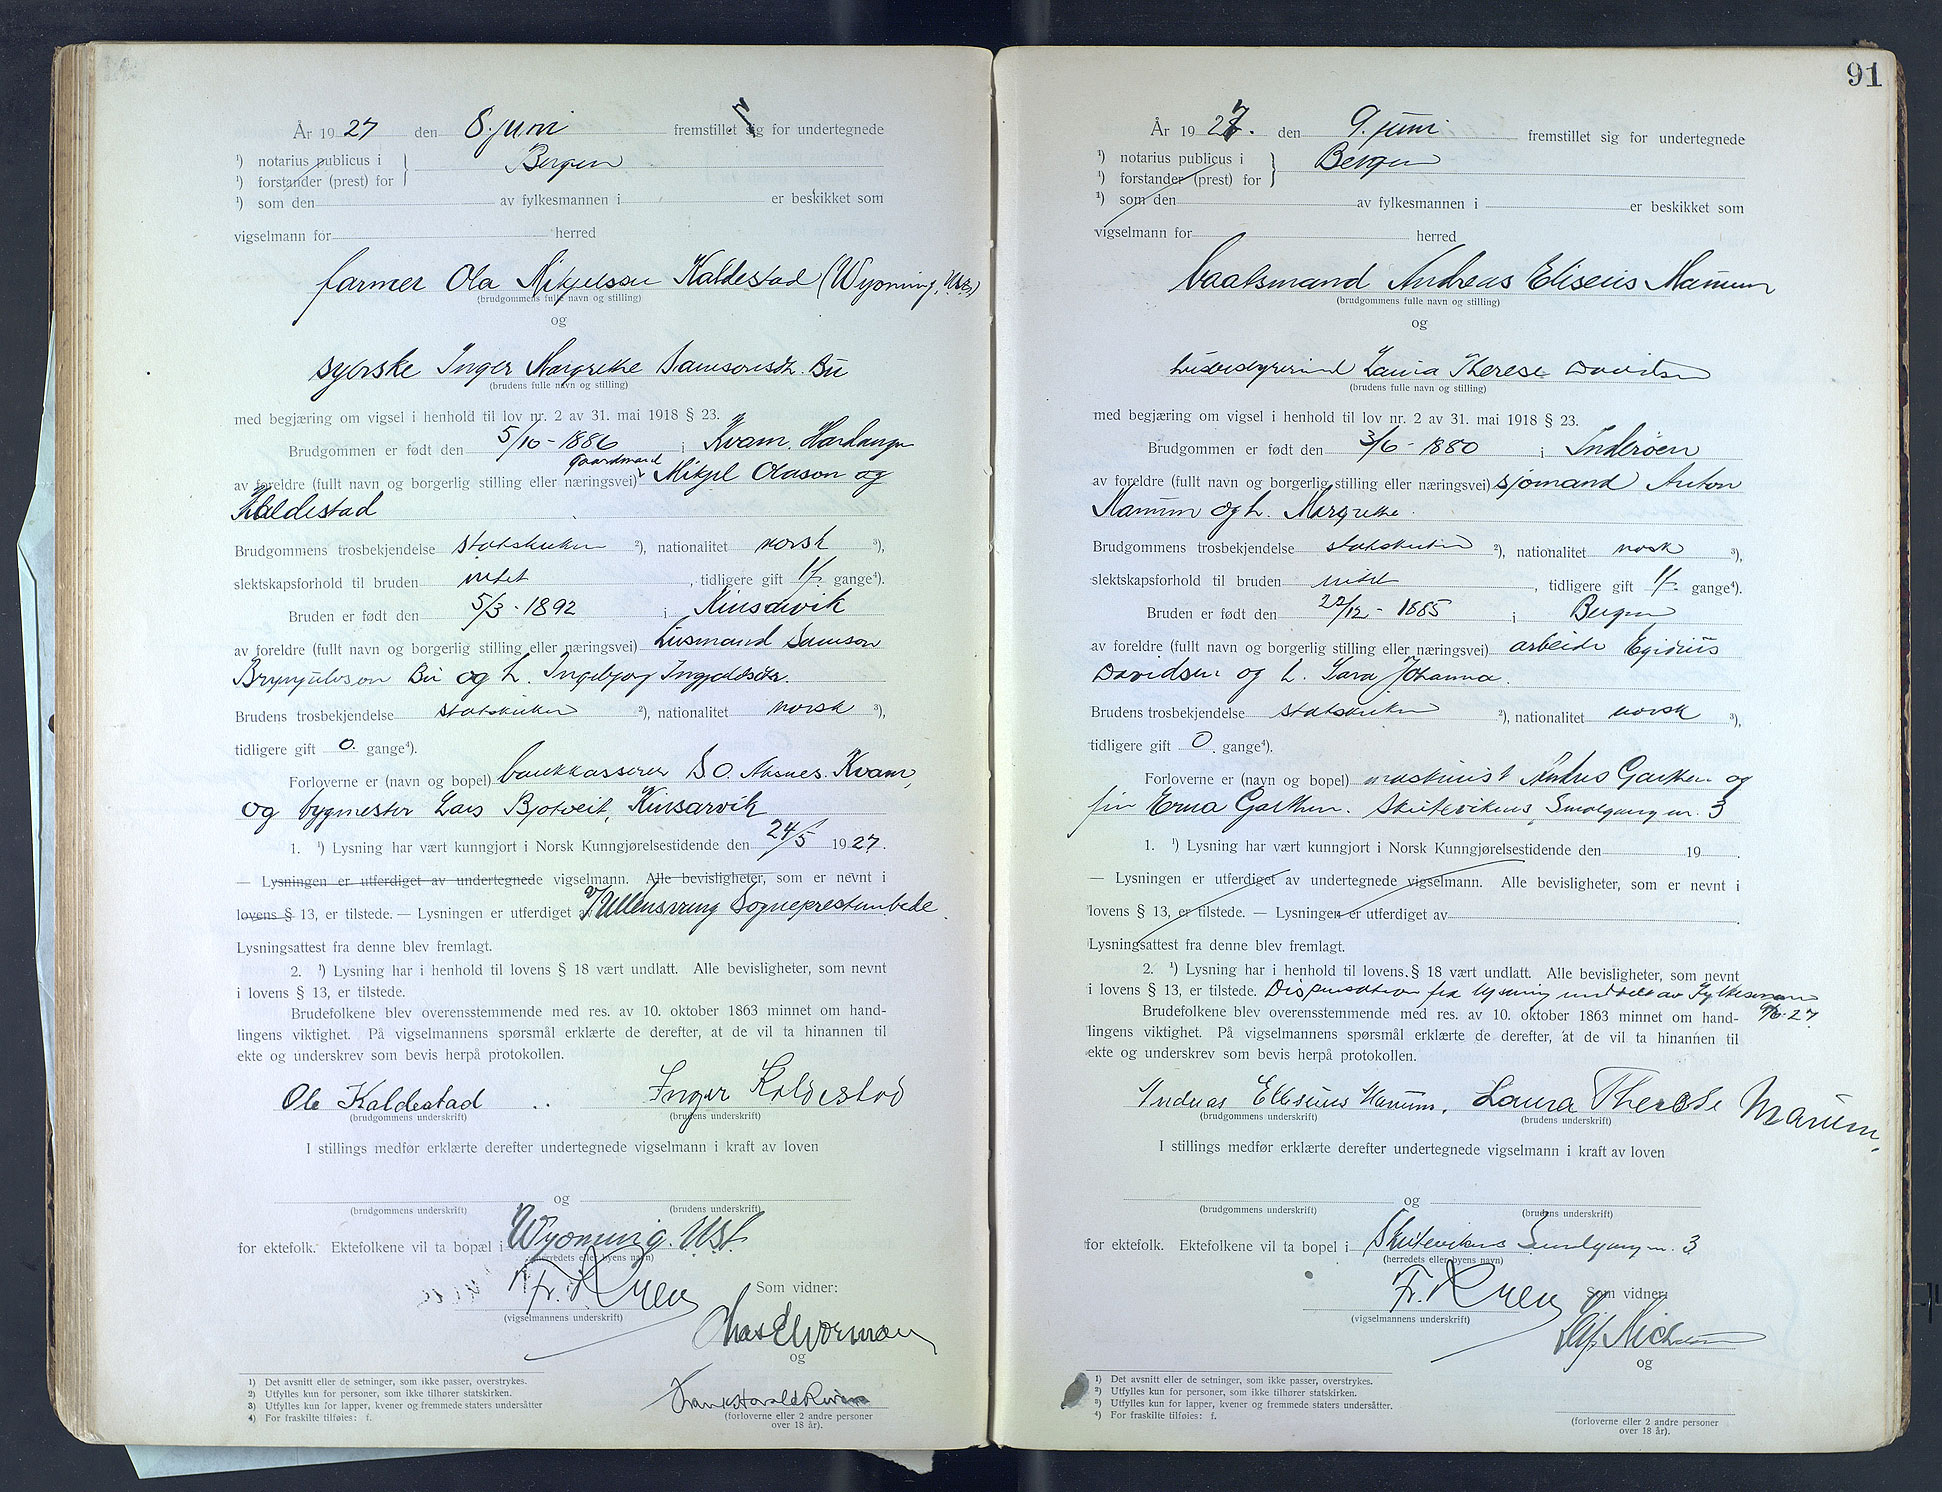 År 1927 den 8. juni fremstillet sig for undertegnede
1) notarius publicus i Bergen
1) forstander (prest) for
1) som den av fylkesmannen i er beskikket som
vigselmann for herred
farmer Ola Mikjelson Kaldestad (Wyoming, U.S.A.)
(brudgommens fulle navn og stilling)
og
syerske Inger Margrethe Samsonsdtr. Bu
(brudens fulle navn og stilling)
med begjæring om vigsel i henhold til lov nr. 2 av 31. mai 1918 § 23.
Brudgommen er født den 5/10-1886 i Kvam. Hardanger
gaardmand
av foreldre (fullt navn og borgerlig stilling eller næringsvei) Mikjel Olason og
Kaldestad
Brudgommens trosbekjendelse statskirken 2), nationalitet norsk 3),
slektskapsforhold til bruden intet, tidligere gift 1/. gange4).
Bruden er født den 5/3-1892 i Kinsarvik
av foreldre (fullt navn og borgerlig stilling eller næringsvei) Husmand Samson
Brynjulvson Bu og h. Ingebjorg Ingjaldsdtr.
Brudens trosbekjendelse statskirken 2), nationalitet norsk 3),
tidligere gift 0. gange4).
Forloverne er (navn og bopel) bankkasserer S O. Aksnes. Kvam,
og bygmester Lars Bjotveit, Kinsarvik
1. 1) Lysning har vært kunngjort i Norsk Kunngjørelsestidende den 24/5 1927.
— Lysningen er utferdiget av undertegnede vigselmann. Alle bevisligheter, som er nevnt i
lovens § 13, er tilstede. — Lysningen er utferdiget av Ullensvang Sogneprestembede.
Lysningsattest fra denne blev fremlagt.
2. 1) Lysning har i henhold til lovens § 18 vært undlatt. Alle bevisligheter, som nevnt
i lovens § 13, er tilstede.
Brudefolkene blev overensstemmende med res. av 10. oktober 1863 minnet om hand-
lingens viktighet. På vigselmannens spørsmål erklærte de derefter, at de vil ta hinannen til
ekte og underskrev som bevis herpå protokollen.
Ole Kaldestad Inger Kaldestad
(brudgommens underskrift) (brudens underskrift)
I stillings medfør erklærte derefter undertegnede vigselmann i kraft av loven
og
(brudgommens underskrift) (brudens underskrift)
for ektefolk. Ektefolkene vil ta bopæl i Wyoming. U.S.A.
(herredets eller byens navn)
Som vidner:
(vigselmannens underskrift)
og
1) Det avsnitt eller de setninger, som ikke passer, overstrykes.
2) Utfylles kun for personer, som ikke tilhører statskirken.
3) Utfylles kun for lapper, kvener og fremmede staters undersåtter
4) For fraskilte tilføies: f.
(forloverne eller 2 andre personer
over 18 år).
91
År 1927. den 9. juni fremstillet sig for undertegnede
1) notarius publicus i Bergen
1) forstander (prest) for
1) som den av fylkesmannen i er beskikket som
vigselmann for herred
baatsmand Andreas Eliseus Marum
(brudgommens fulle navn og stilling)
og
Laura Therese Davidsen
(brudens fulle navn og stilling)
med begjæring om vigsel i henhold til lov nr. 2 av 31. mai 1918 § 23.
Brudgommen er født den 3/6-1880 i Inderøen
av foreldre (fullt navn og borgerlig stilling eller næringsvei) sjømand Anton
Marum og h. Margrethe.
Brudgommens trosbekjendelse statskirken 2), nationalitet norsk 3),
slektskapsforhold til bruden intet, tidligere gift 1/. gange4).
Bruden er født den 22/12-1885 i Bergen
av foreldre (fullt navn og borgerlig stilling eller næringsvei) arbeider Egidius
Davidsen og h. Sara Johanna.
Brudens trosbekjendelse statskirken 2), nationalitet norsk 3),
tidligere gift 0. gange4).
Forloverne er (navn og bopel) maskinist Garthen og
fru Erna Garthen. Skutevikens Smalgang nr. 3
1. 1) Lysning har vært kunngjort i Norsk Kunngjørelsestidende den 19 .
— Lysningen er utferdiget av undertegnede vigselmann. Alle bevisligheter, som er nevnt i
lovens § 13, er tilstede. — Lysningen er utferdiget av
Lysningsattest fra denne blev fremlagt.
2. 1) Lysning har i henhold til lovens § 18 vært undlatt. Alle bevisligheter, som nevnt
i lovens § 13, er tilstede. Dispensation fra lysning meddelt av Fylkesmann
9/6-27.
Brudefolkene blev overensstemmende med res. av 10. oktober 1863 minnet om hand-
lingens viktighet. På vigselmannens spørsmål erklærte de derefter, at de vil ta hinannen til
ekte og underskrev som bevis herpå protokollen.
Andreas Elisius Marum. Laura Therese Marum.
(brudgommens underskrift) (brudens underskrift)
I stillings medfør erklærte derefter undertegnede vigselmann i kraft av loven
og
(brudgommens underskrift) (brudens underskrift)
for ektefolk. Ektefolkene vil ta bopel i Skutevikens Smalgang nr. 3
(herredets eller byens navn)
Som vidner:
(vigselmannens underskrift)
og
1) Det avsnitt eller de setninger, som ikke passer, overstrykes.
2) Utfylles kun for personer, som ikke tilhører statskirken.
3) Utfylles kun for lapper, kvener og fremmede staters undersåtter.
4) For fraskilte tilføies: f.
(forloverne eller 2 andre personer
over 18 år).